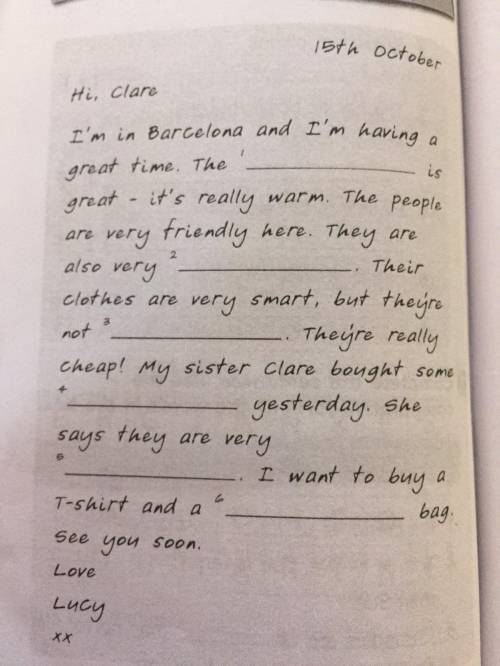 15th October
Hi, Clare
I'm in Barcelona and I'm having a
great time. The 1 ____________ is
great - it's really warm. The people
are very friendly here. They are
also very 2 ____________. Their
clothes are very smart, but they're
not 3 ____________. They're really
cheap! My sister Clare bought some
4 ____________ yesterday. She
says they are very
5 ____________. I want to buy a
T-shirt and a 6 ____________ bag.
See you soon.
Love
Lucy
xx